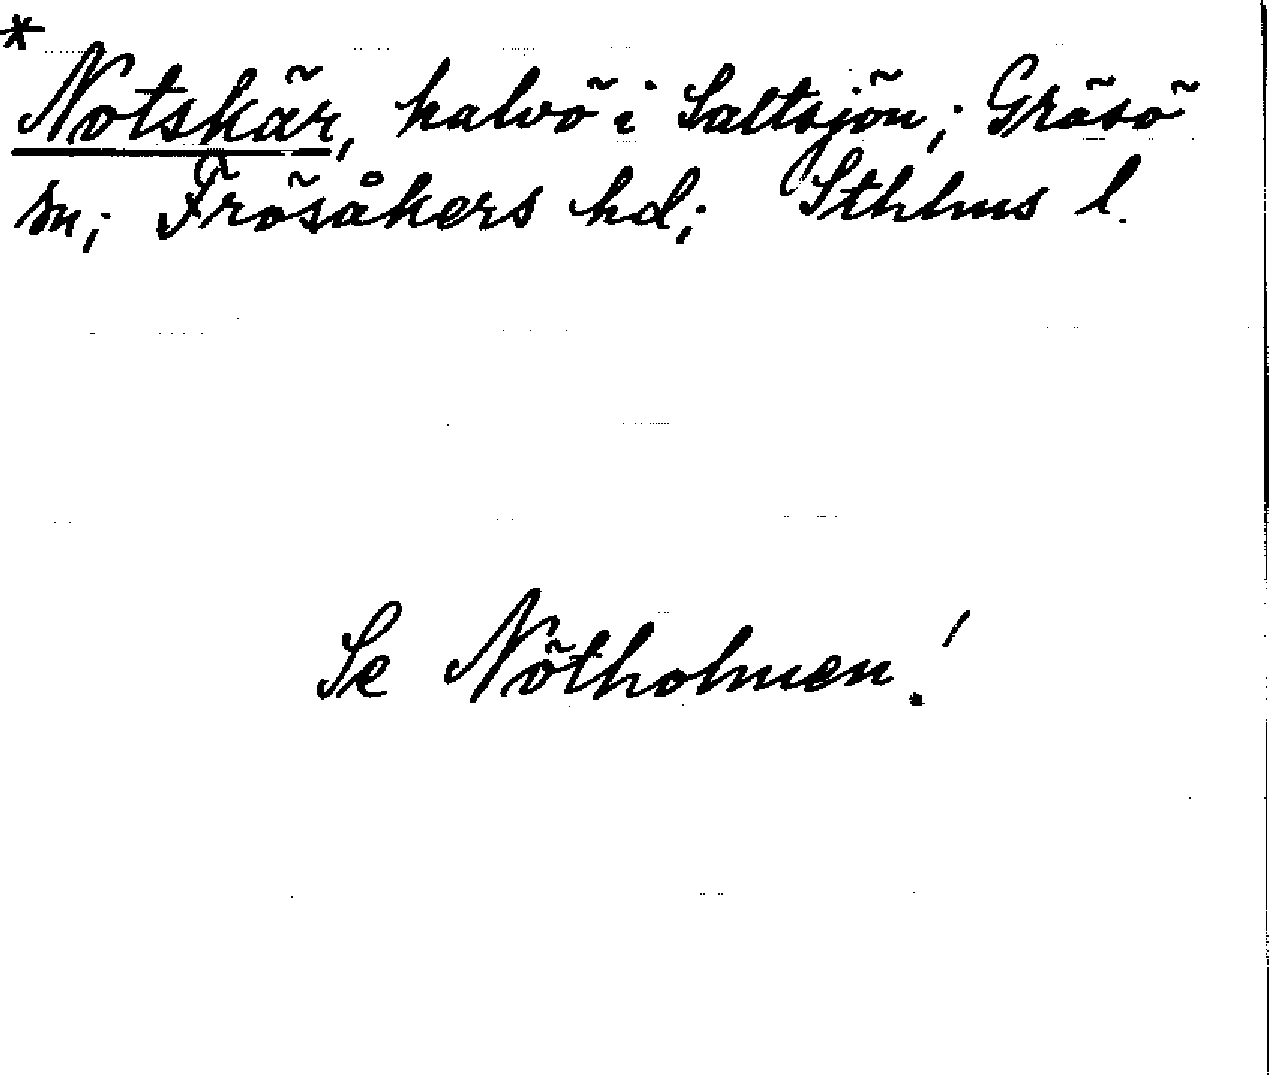 *
Notskär, halvö i Saltsjön; Gräsö
sn; Frösåkers hd; Sthlms l.
Se Nötholmen!